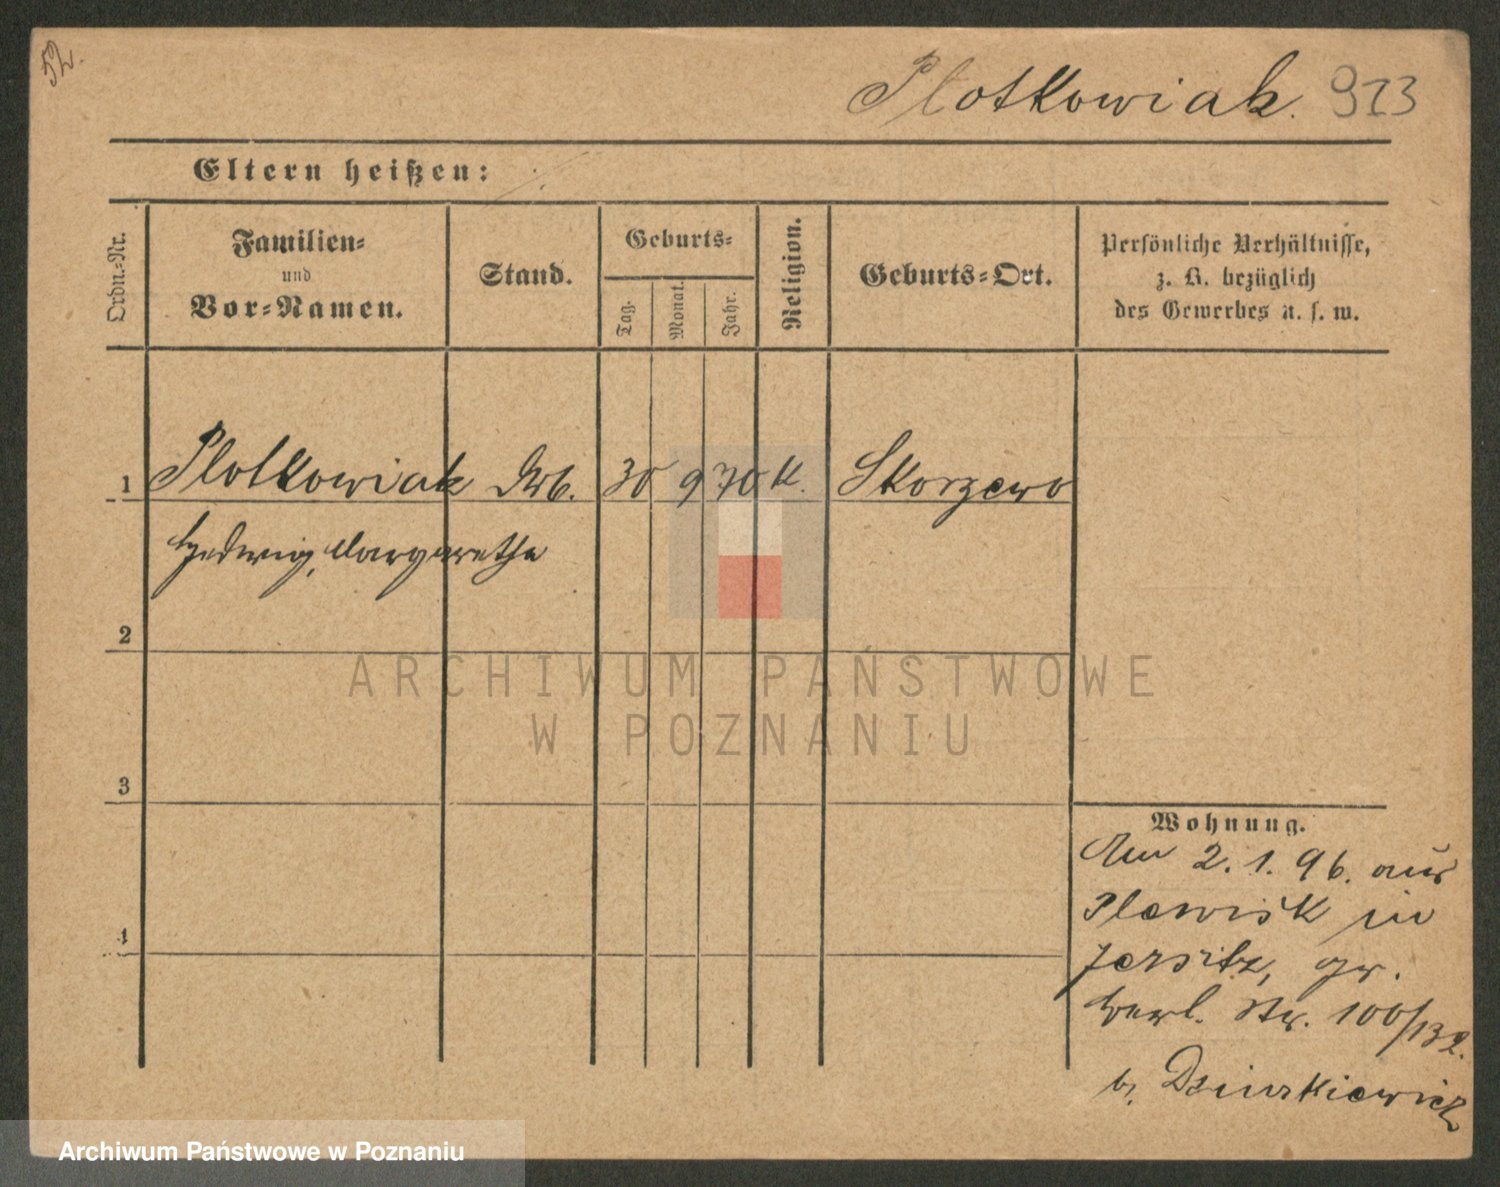 52.
Plotkowiak. 913
Eltern heißen:
Ordn.-Nr.
Familien-
und
Vor-Namen.
Stand.
Geburts-
Tag.
Monat.
Jahr.
Religion.
Geburts-Ort.
Persönliche Verhältnisse,
z. B. bezüglich
des Gewerbes u. s. w.
1 Plotkowiak 30 9 70 K. Skorzewo
Hedwig, Margarethe
2
3
4
Wohnung.
Am 2. 1. 96. aus
Plewisk in
Jersitz, gr.
Berl. Str. 100/132.
b.
ARCHIWUM PAŃSTWOWE
W POZNANIU
Archiwum Państwowe w Poznaniu